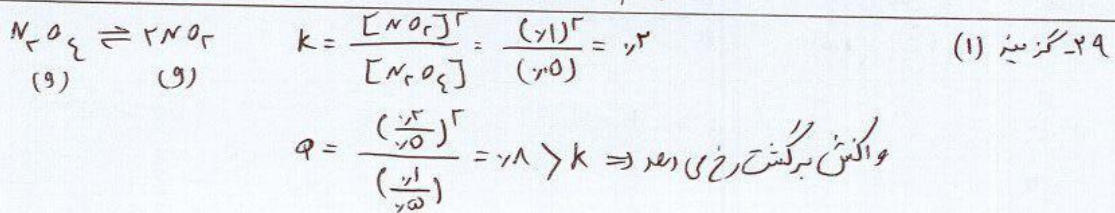 ۲۹ـ گزینه (۱)
N۲O۴ (g) ⇌ ۲NO۲ (g)    K = [NO۲]^۲ / [N۲O۴] = (٫۱)^۲ / (٫۰۵) = ٫۲
Q = (٫۲/٫۵)^۲ / (٫۱/٫۵) = ٫۸ > K ⇒ واکنش برگشت رخ می دهد